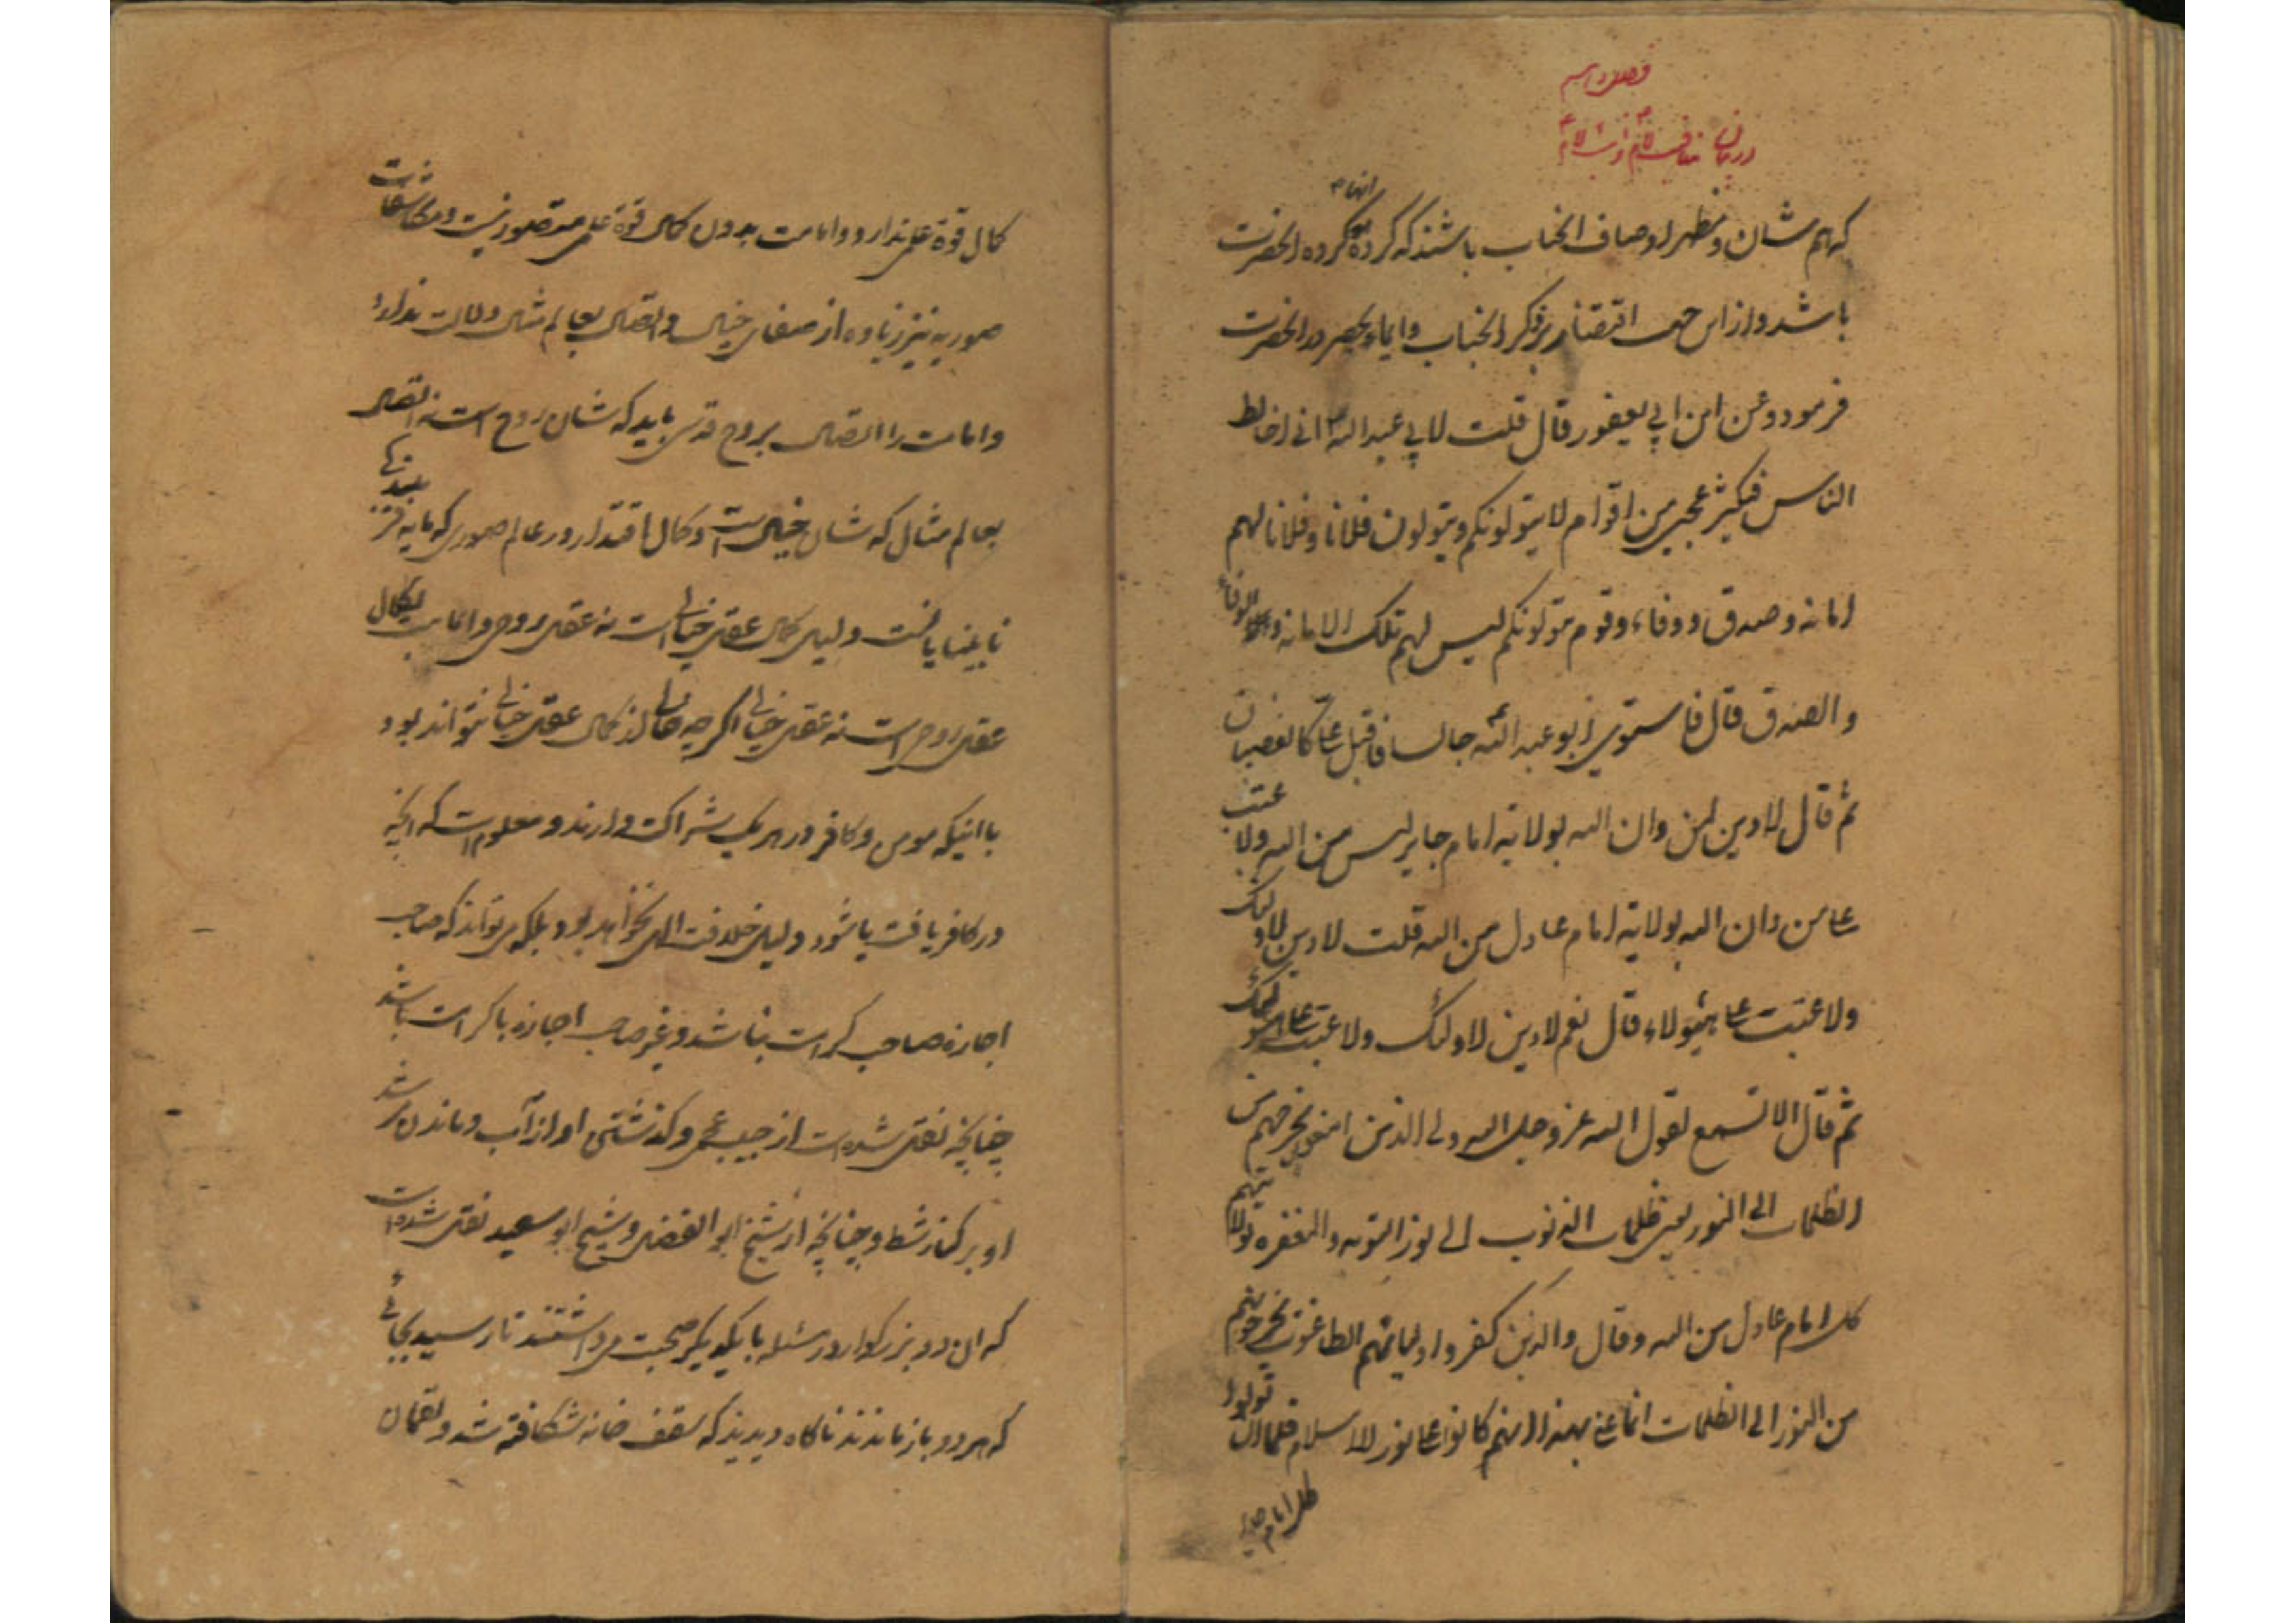 که هم شان و مظهر اوصاف انجناب باشند که کرده انها کرده انحضرت
باشد و از این جهت اقتصار بر ذکر انجناب و ایماء بحصر در انحضرت
فرمود و عن ابن ابي یعفور قال قلت لابي عبد الله ع اني اخالط
الناس فیکثر عجبي من اقوام لا یتولونکم و یتولون فلانا و فلانا لهم
امانة و صدق و وفاء و قوم یتولونکم لیس لهم تلک الامانة و لا الوفاء
و الصدق قال فاستوي ابو عبد الله ع جالسا فاقبل علي کالغضبان
ثم قال لا دین لمن دان الله بولایة امام جایر لیس من الله و لا عتب
علی من دان الله بولایة امام عادل من الله قلت لا دین لاولئک
و لا عتب علی هٶلاء قال نعم لا دین لاولئک و لا عتب علی هؤلاء
ثم قال الا تسمع لقول الله عز و جل الله ولي الذین امنوا یخرجهم من
الظلمات الی النور یعني ظلمات الذنوب الی نور التوبه و المغفره لولایتهم
کل امام عادل من الله و قال و الذین کفروا اولیائهم الطاغوت یخرجونهم
من النور الی الظلمات انما عني بهذا انهم کانوا علی نور الاسلام فلما ان تولوا
کل امام جایر
کمال قوة علمی ندارد و امامت بدون کمال قوة علمی متصور نیست و مکاشفات
صوریه نیز زیاده از صفای خیال و اتصال بعالم مثال دلالت ندارد
و امامت را اتصال بروح قدسی باید که شان روح است نه اتصال
بعالم مثال که شان خیال است و کمال اقتدار در عالم صوری که مایه
نابینا یافت دلیل کمال عقل خیالی است نه عقل روحی و امامت بکمال
عقل روحی است نه عقل خیالی اگرچه خالی از کمال عقل خیالی نتواند بود
با اینکه مومن و کافر در هر یک شراکت دارند و معلوم است که انچه
در کافر یافت یا شود دلیل خلافت الهی نخواهد بود بلکه می تواند که صاحب
اجازه صاحب کرامت نباشد و غیر صاحب اجازه با کرامت باشد
چنانچه نقل شده است از حبیب عجمی و گذشتن او از آب و ماندن مرشد
او بر کنار شط و چنانچه از شیخ ابو الفضل و شیخ ابو سعید نقل شده است
که ان دو بزرگوار در مسئله با یکدیگر صحبت می داشتند تا رسید بجائی
که هر دو باز ماندند ناگاه دیدند که سقف خانه شکافته شد و لقمان